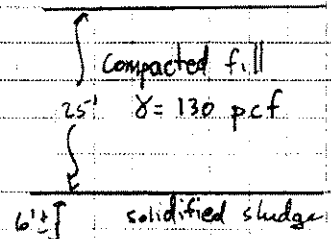 Compacted fill
25' γ = 130 pcf
6'± solidified sludge